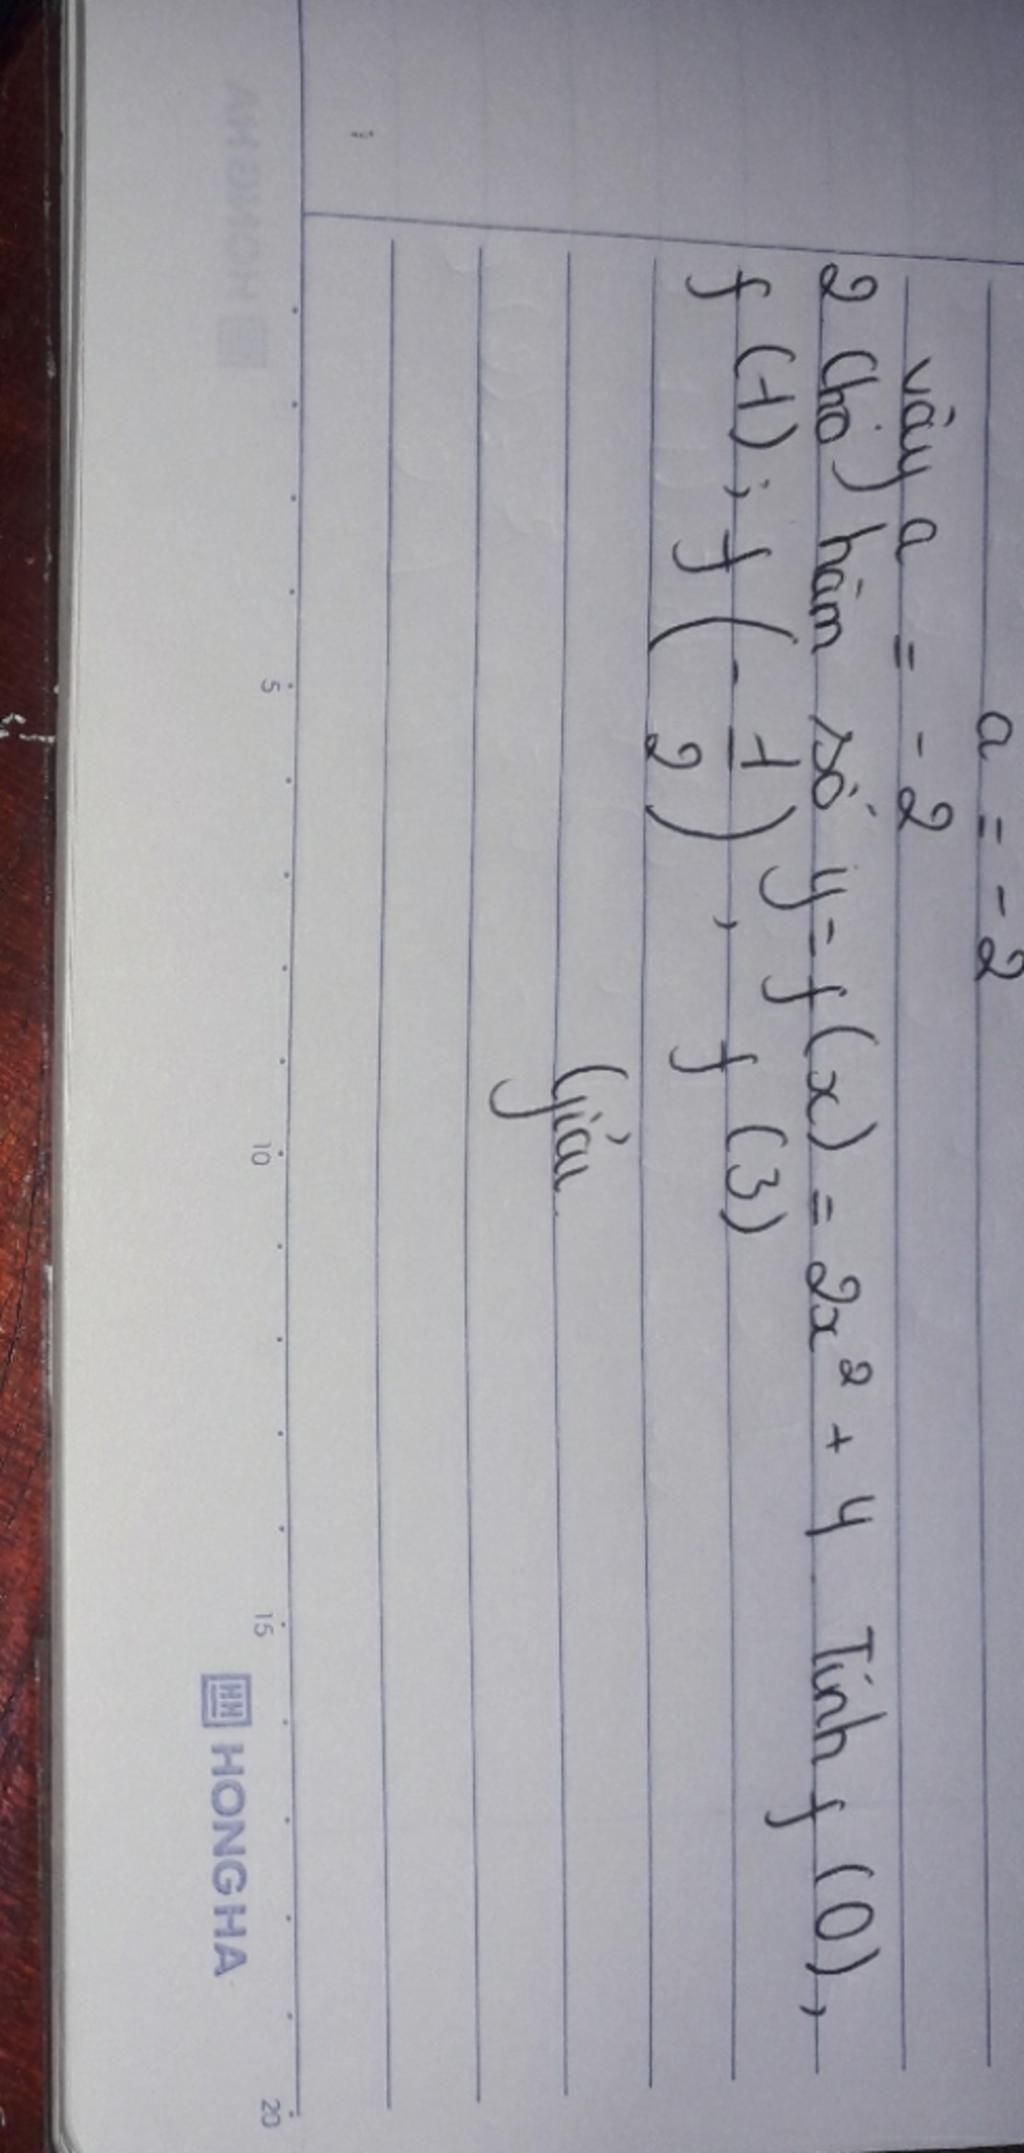 a = -2
vây a = -2
2 Cho hàm số y = f(x) = 2x² + 4 Tính f(0),
f(1); f(-1/2), f(3)
Giải
5 10 15 20
HONG HA
HONG HA